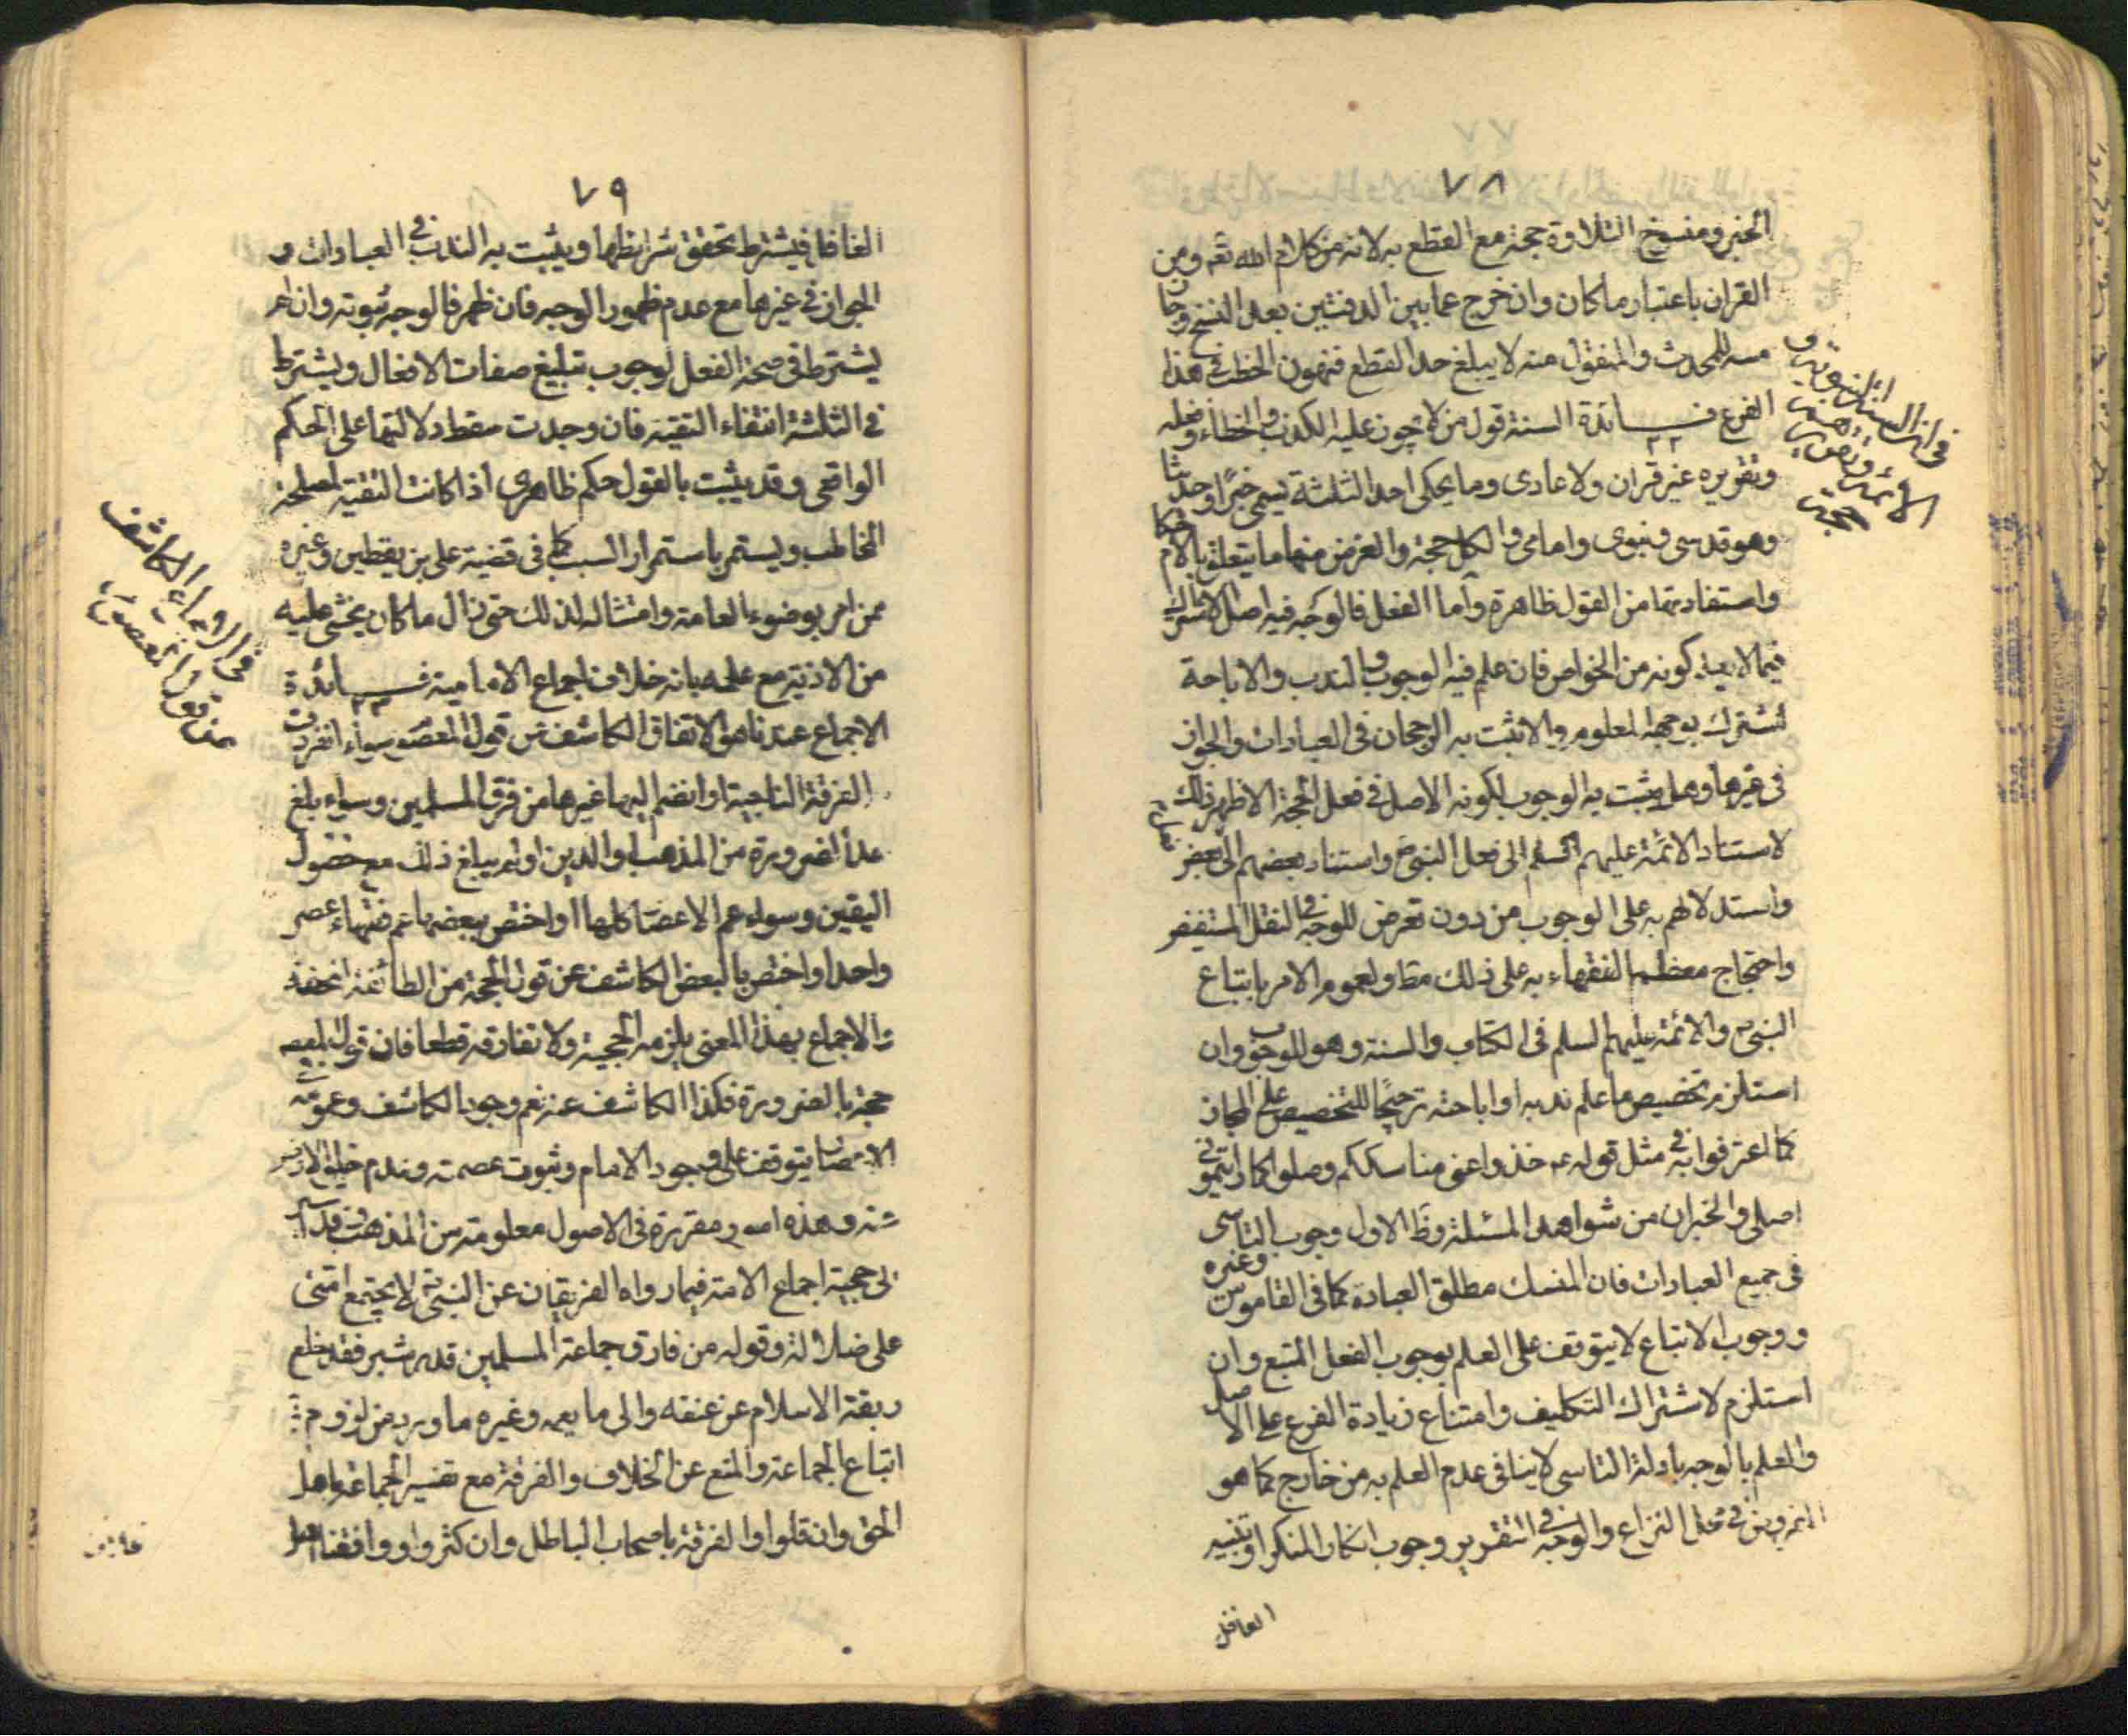 ٧٨
الخبر ومنسوخ التلاوة حجة مع القطع به لانه من كلام الله تعه ومن
القران باعتبار ما كان وان خرج عما بين الدفتين بعد النسخ وجاز
مسه للمحدث والمنقول منه لا يبلغ حد القطع فتهون الخطب في هذا
الفرع فائدة السنة قول من لا يجوز عليه الكذب والخطاء وفعله
٢٢
وتقريره غير قران ولا عادى وما يحكى احد الثلثة يسمى خبرًا وحديثا
وهو قدسى ونبوى وامامى والكل حجة والغرض منها ما يتعلق بالاحكام
واستفادتها من القول ظاهرة وأما الفعل فالوجه فيه اصل الاشتراك
فيما لا يعلم كونه من الخواص فان علم فيه الوجوب والندب والاباحة
اشترك بوجهه المعلوم والا ثبت به الرجحان فى العبادات والجواز
فى غيرها وهل يثبت به الوجوب لكونه الاصل فى فعل الحجة الاظهر ذلك
لاستناد الائمة عليهم السلم الى فعل النبى ص واستناد بعضهم الى بعض
واستدلالهم به على الوجوب من دون تعرض للوجه فى النقل المستفيض
واحتجاج معظم الفقهاء به على ذلك مط ولعموم الامر باتباع
النبى ص والائمة عليهم السلم فى الكتاب والسنة وهو للوجوب وان
استلزم تخصيص ما علم ندبه او اباحته ترجيحًا للتخصيص على المجاز
كما اعترفوا به فى مثل قوله ع خذوا عنى مناسككم وصلوا كما رايتمونى
اصلى والخبران من شواهد المسئلة وظ الاول وجوب التاسى
فى جميع العبادات فان المنسك مطلق العبادة كما فى القاموس وغيره
ووجوب الاتباع لا يتوقف على العلم بوجوب الفعل المتبع وان
استلزم لاشتراك التكليف وامتناع زيادة الفرع على الاصل
والعلم بالوجه بادلة التاسى لا ينافى عدم العلم به من خارج كما هو
المفروض فى محل النزاع والوجه فى التقرير وجوب انكار المنكر او تنبيه
الغافل
فى ان السنة النبوية و
الائمة وتقريرهم
حجة
٧٩
الغافل فيشترط تحقق شرائطها ويثبت به الندب فى العبادات و
الجواز فى غيرها مع عدم ظهور الوجه فان ظهر فالوجه ثبوته وان لم
يشترط فى صحة الفعل لوجوب تبليغ صفات الافعال ويشترط
فى الثلثة انتفاء التقية فان وجدت سقط دلالتها على الحكم
الواقعى وقد يثبت بالقول حكم ظاهرى اذا كانت التقية لمصلحة
المخاطب ويستمر باستمرار السبب كما فى قضية على بن يقطين وغيره
ممن امر بوضوء العامة وامتثاله لذلك حتى زال ما كان يخشى عليه
من الاذية مع علمه بانه خلاف اجماع الامامية فائدة
٢٣
الاجماع عندنا هو الاتفاق الكاشف عن قول المعصوم سواء انفردت
الفرقة الناجية او انضم اليها غيرها من فرق المسلمين وسواء بلغ
حد الضرورة من المذهب او الدين او لم يبلغ ذلك مع حصول
اليقين وسواء عم الاعصار كلها او اختص ببعضها عم فقهاء عصر
واحد او اختص بالبعض الكاشف عن قول الحجة من الطائفة المحقة
والاجماع بهذا المعنى يلزمه الحجية ولا تفارقه قطعا فان قول المعصوم
حجة بالضرورة فكذا الكاشف عنه نعم وجود الكاشف وعمومه فى
الاعصار يتوقف على وجود الامام وثبوت عصمته وعدم خلو الارض
منه وهذه امور مقررة فى الاصول معلومة من المذهب
على حجية اجماع الامة فيما رواه الفريقان عن النبى ص لا يجتمع امتى
على ضلالة وقوله من فارق جماعة المسلمين قدر شبر فقد خلع
ربقة الاسلام عن عنقه والى ما يعمه وغيره ما ورد من لزوم
اتباع الجماعة والمنع عن الخلاف والفرقة مع تفسير الجماعة باهل
الحق وان قلوا والفرقة باصحاب الباطل وان كثروا ووافقنا
فى الاجماع الكاشف
عن قول المعصوم